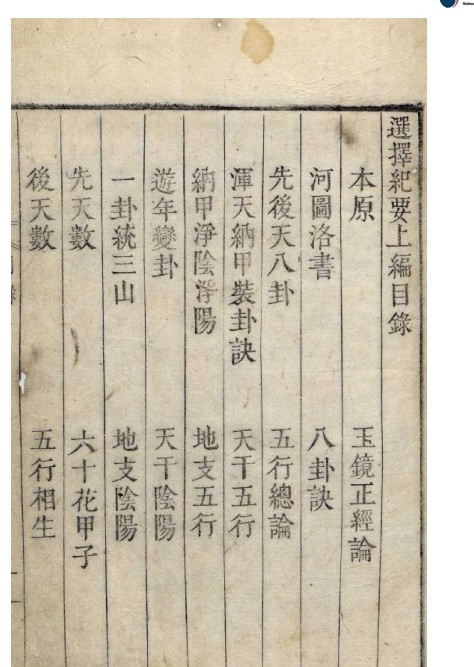 選擇紀要上編目錄
本原 玉鏡正經論
河圖洛書 八卦訣
先後天八卦 五行總論
渾天納甲裝卦訣 天干五行
納甲淨陰淨陽 地支五行
遊年變卦 天干陰陽
一卦統三山 地支陰陽
先天數 六十花甲子
後天數 五行相生